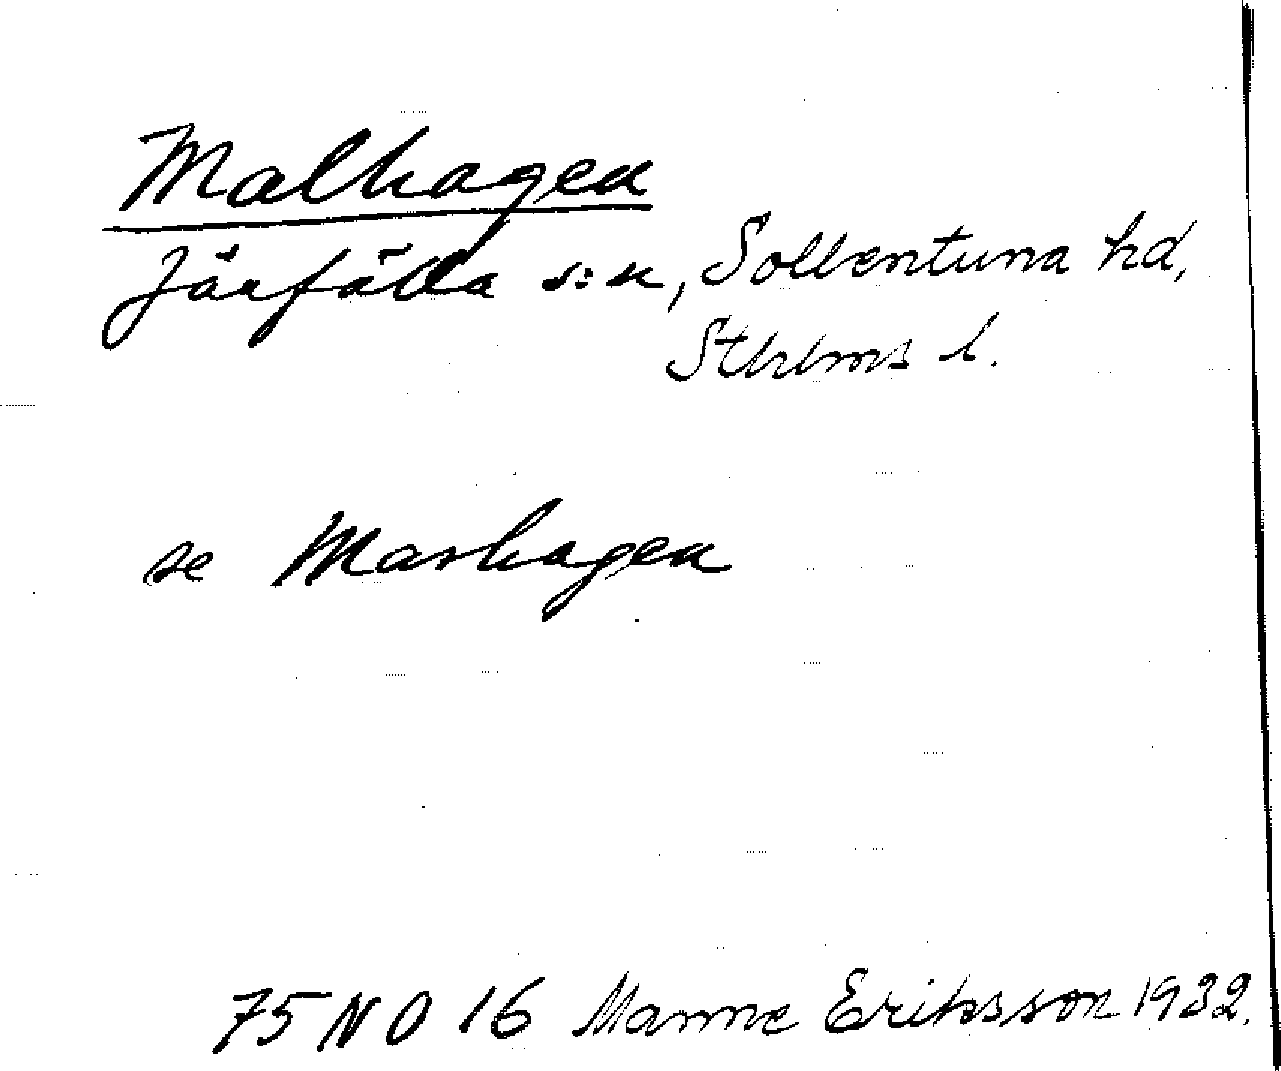 Malhagen
Järfälla s:n, Sollentuna hd,
Sthlms l.
se Marhagen
75 NO 16 Manne Eriksson 1932.